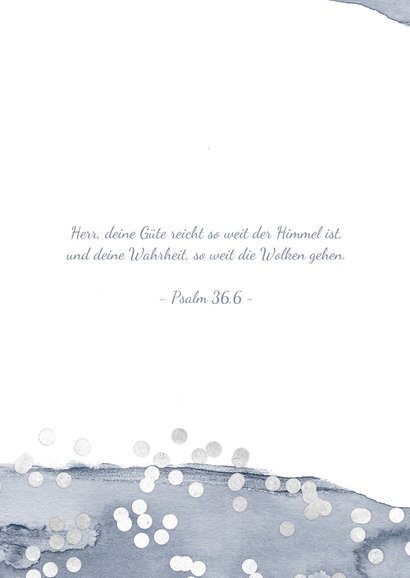 Herr, deine Güte reicht so weit der Himmel ist,
und deine Wahrheit, so weit die Wolken gehen.
- Psalm 36.6 -